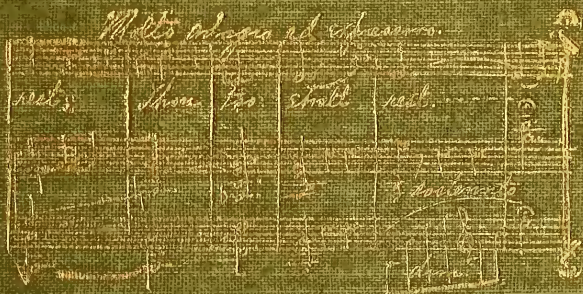 Molto adagio ed espressivo.
rest; Thou too shalt rest.
sostenuto
dim.